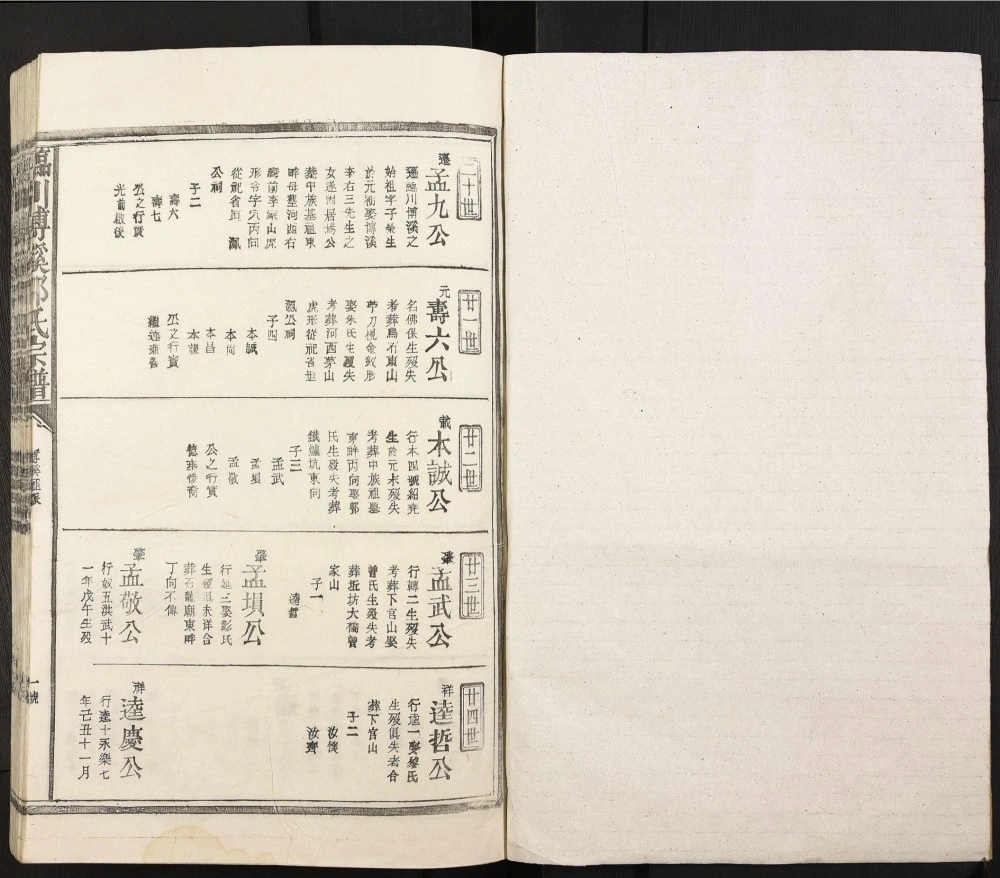 二十世
遷
孟九公
遷臨川博溪之
始祖字子榮生
於元初娶博溪
李右三先生之
女遂因居焉公
葬中族基祖東
畔母墓河西右
形令字穴丙向
公祠
子二
壽六
壽七
公之行實
光前啟後
廿一世
元
壽六公
名佛保生歿失
考葬烏石東山
娶朱氏生歿失
考葬河西茅山
虎形從祀省世
濕公祠
子四
本誠
本尚
本昌
本謙
公之行實
廿二世
載
本誠公
行本四號紹堯
生於元末歿失
考葬中族祖墓
東畔丙向娶鄢
氏生歿失考葬
鐵爐坑東向
子三
孟武
孟塤
孟敬
公之行實
廿三世
肇
孟武公
行轉二生歿失
考葬下官山娶
曾氏生歿失考
葬坵坊大橋曾
家山
子一
逵哲
肇
孟塤公
行延三娶彭氏
生歿俱未詳合
葬石龍廟東畔
丁向不傳
肇
孟敬公
行奴五洪武十
一年戊午生歿
廿四世
祥
逵哲公
行逵一娶黎氏
生歿俱失考合
葬下官山
子二
汝懷
汝齊
祥
逵慶公
行逵十永樂七
年己丑十一月
氏宗譜
一號